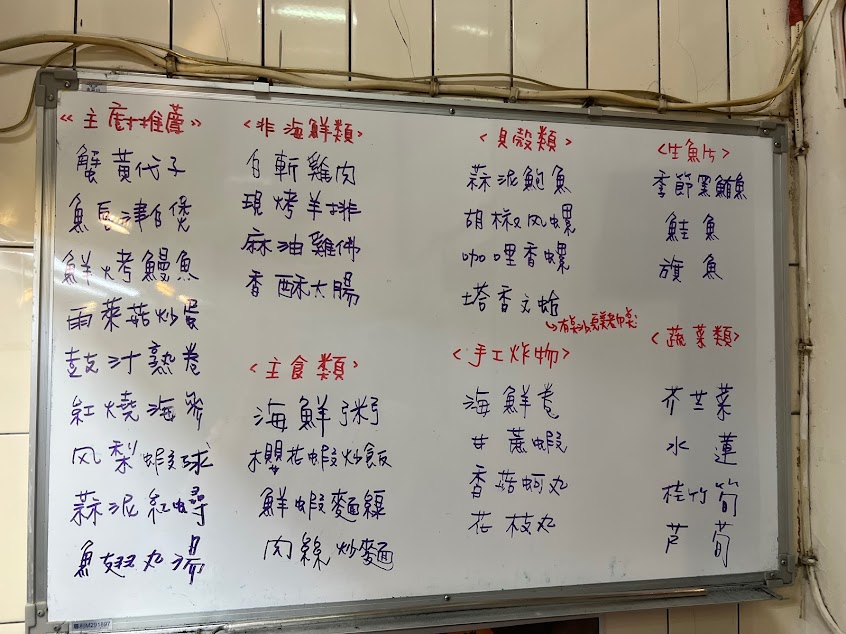 《主廚推薦》
蟹黃代子
魚長津白煲
鮮烤鰻魚
雨萊菇炒蛋
鼓汁熟卷
紅燒海參
风梨蝦球
蒜泥紅蟳
魚翅丸湯
<非海鮮類>
白斬雞肉
現烤羊排
麻油雞佛
香酥大腸
<主食類>
海鮮粥
櫻花蝦炒飯
鮮蝦麵線
肉絲炒麵
<貝殼類>
蒜泥鮑魚
胡椒风螺
咖哩香螺
塔香文蛤
<手工炸物>
海鮮卷
甘蔗蝦
香菇蚵丸
花枝丸
<生魚片>
季節黑鮪魚
鮭魚
旗魚
<蔬菜類>
芥兰菜
水蓮
桂竹筍
芦荀